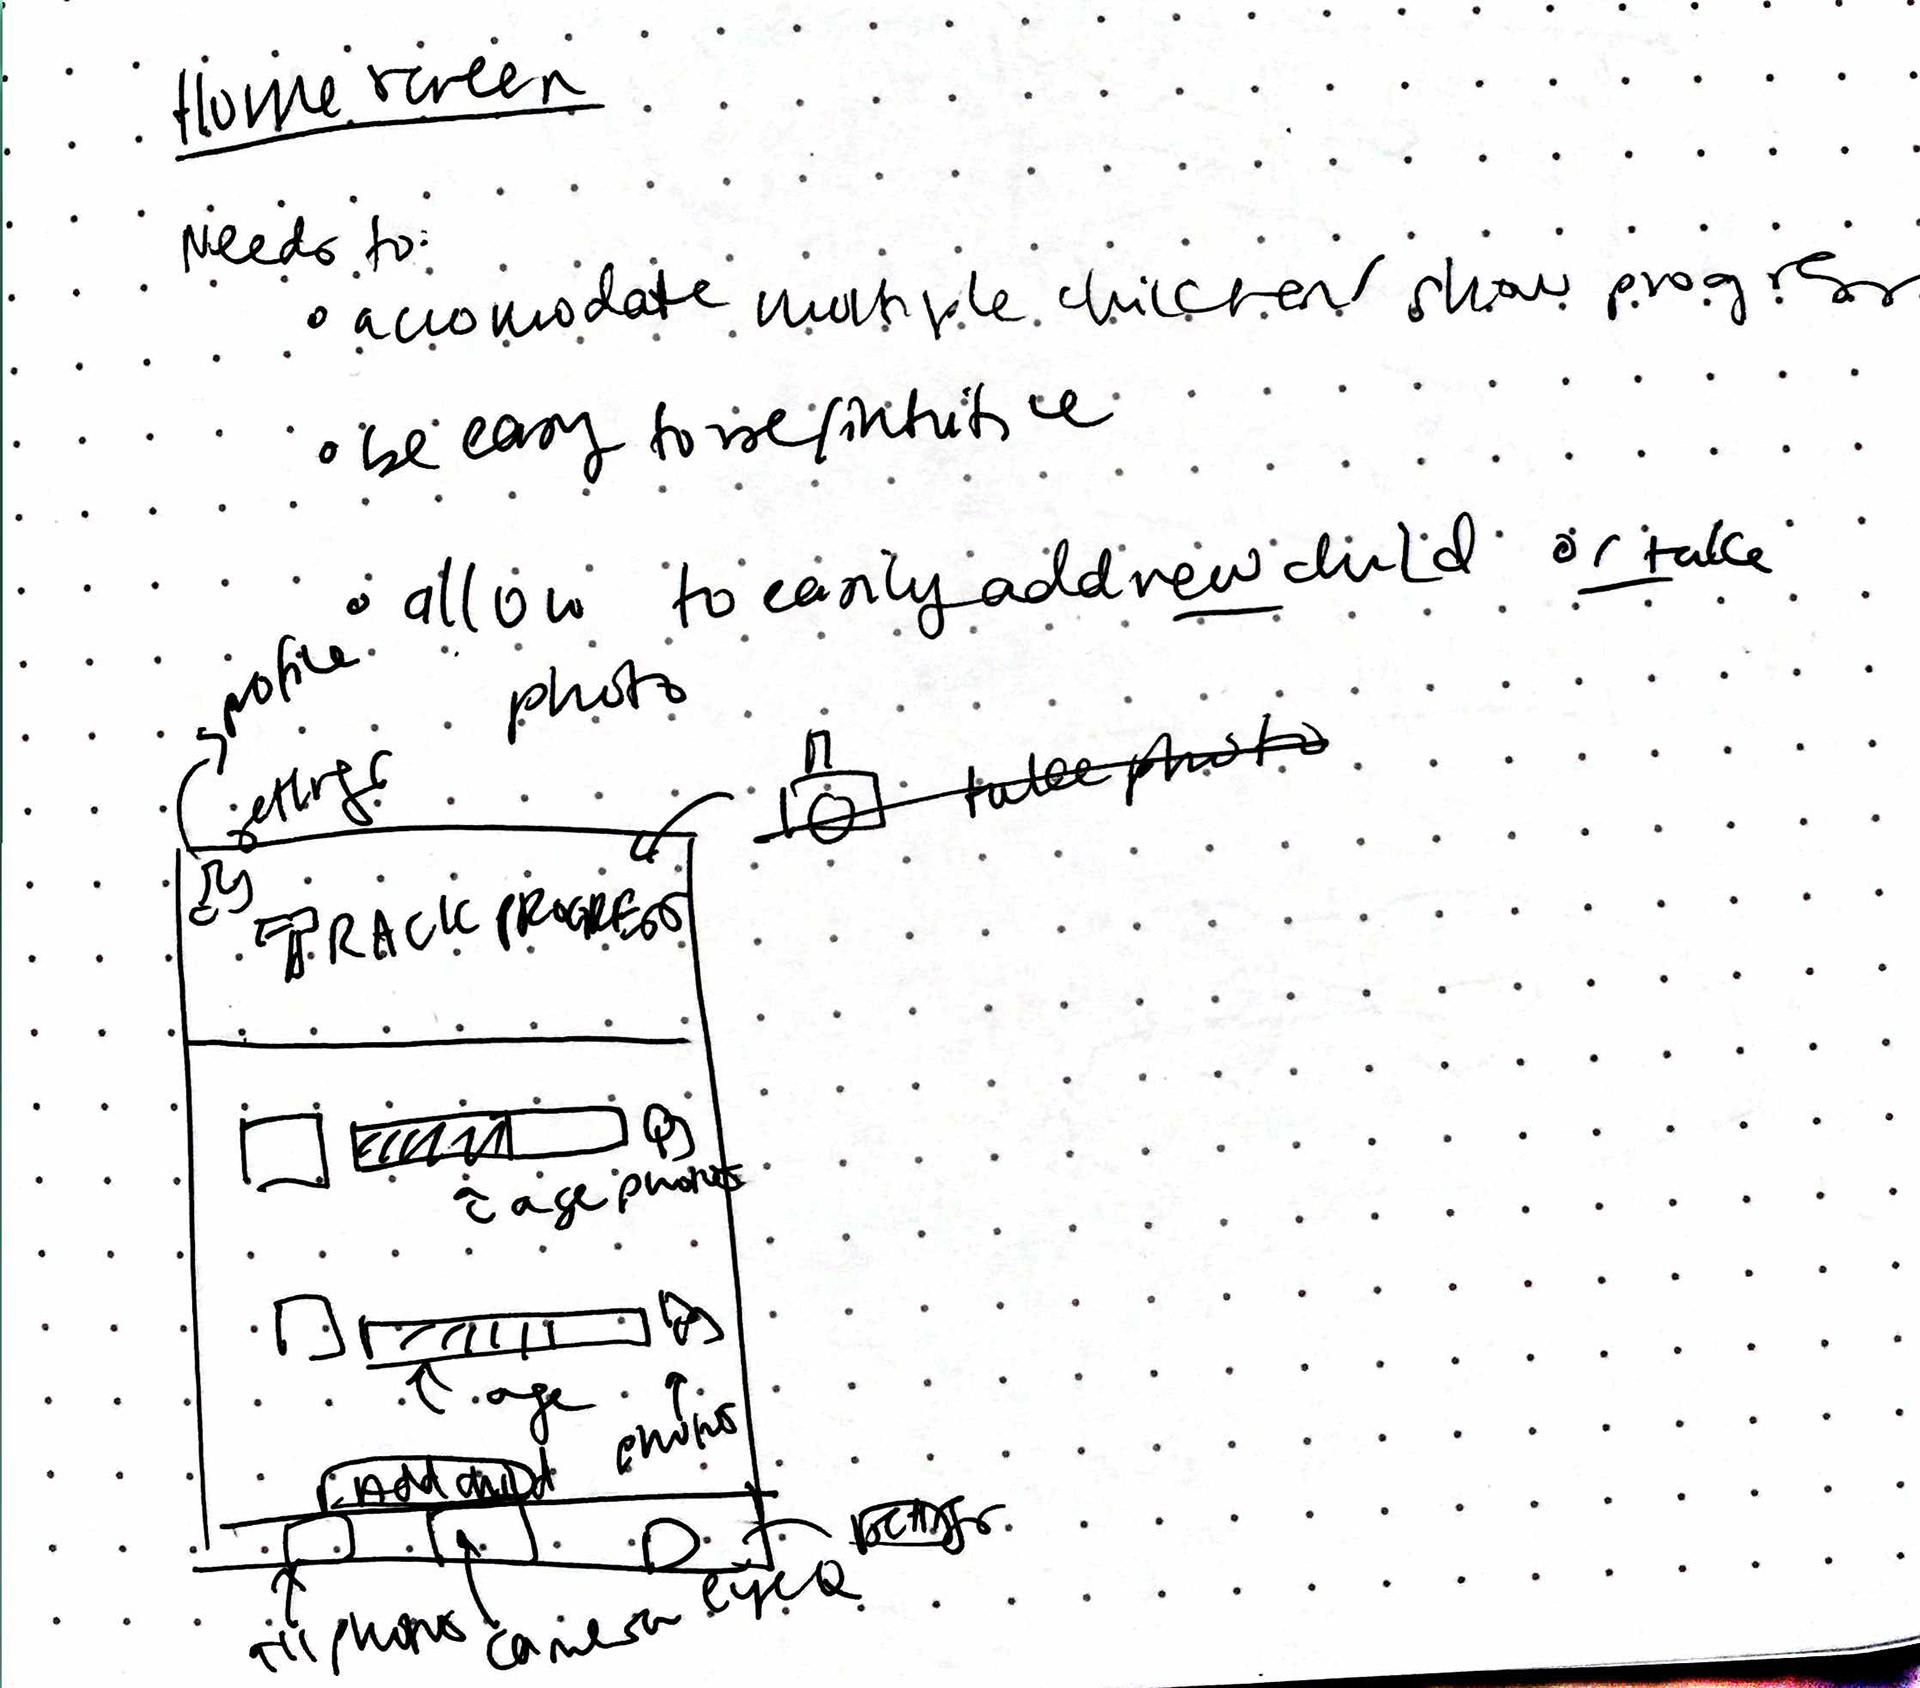 Home screen
Needs to:
• accomodate multiple children/ show progress
• be easy to use/intuitive
• allow to easily add new child or take
photo
profile
settings
take photo
TRACK PROGRESS
age photos
age
photos
Add child
All photos
camera